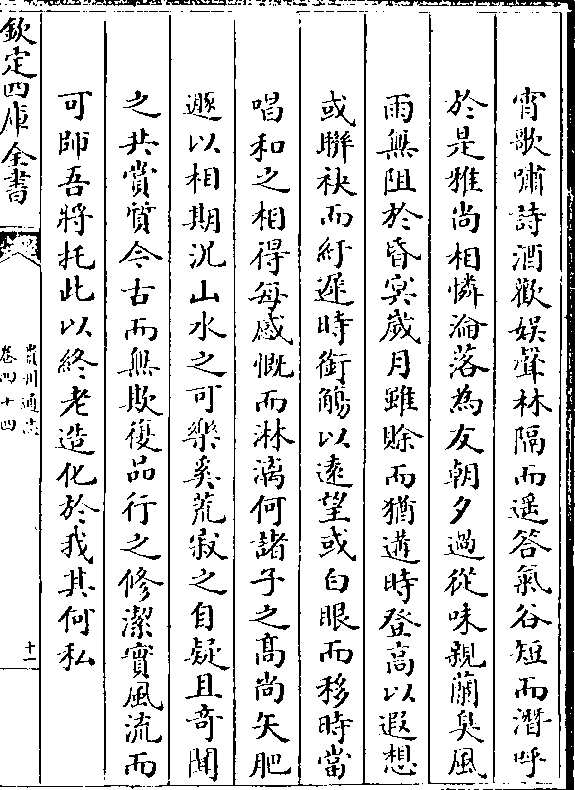 宵歌嘯詩酒歡娛聲林隔而遥答氣谷短而潛呼
於是雅尚相憐淪落為友朝夕過從味親蘭臭風
雨無阻於昏冥歲月雖賒而猶遒時登高以遐想
或聨袂而紆遲時銜觴以遠望或白眼而移時當
唱和之相得每感慨而淋漓何諸子之髙尚矢肥
遯以相期沉山水之可樂奚荒寂之自疑且奇聞
之共賞質今古而無欺復品行之修潔實風流而
可師吾將托此以終老造化於我其何私
欽定四庫全書
貴州通志
卷四十四
十一